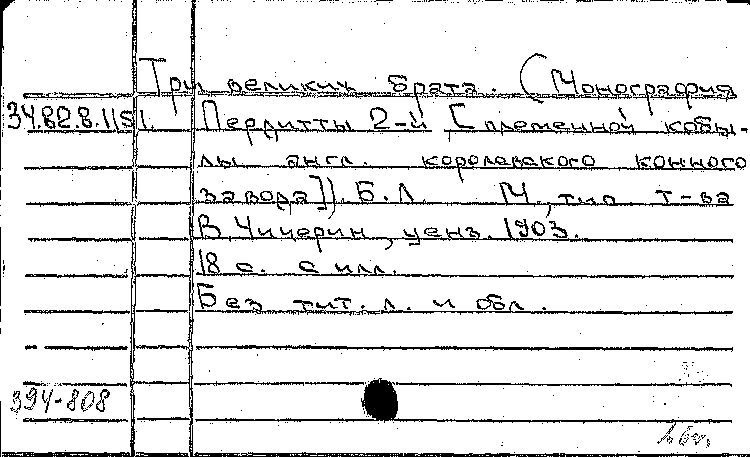 Три великих брата. (Монография
34.82.8.115 Пердитты 2-й [племенной кобы-
лы англ. королевского конного
завода]). Б.Л. М., тип. т-ва
В. Чичерин, ценз. 1903.
18 с. с илл.
Без тит. л. и обл.
394-808